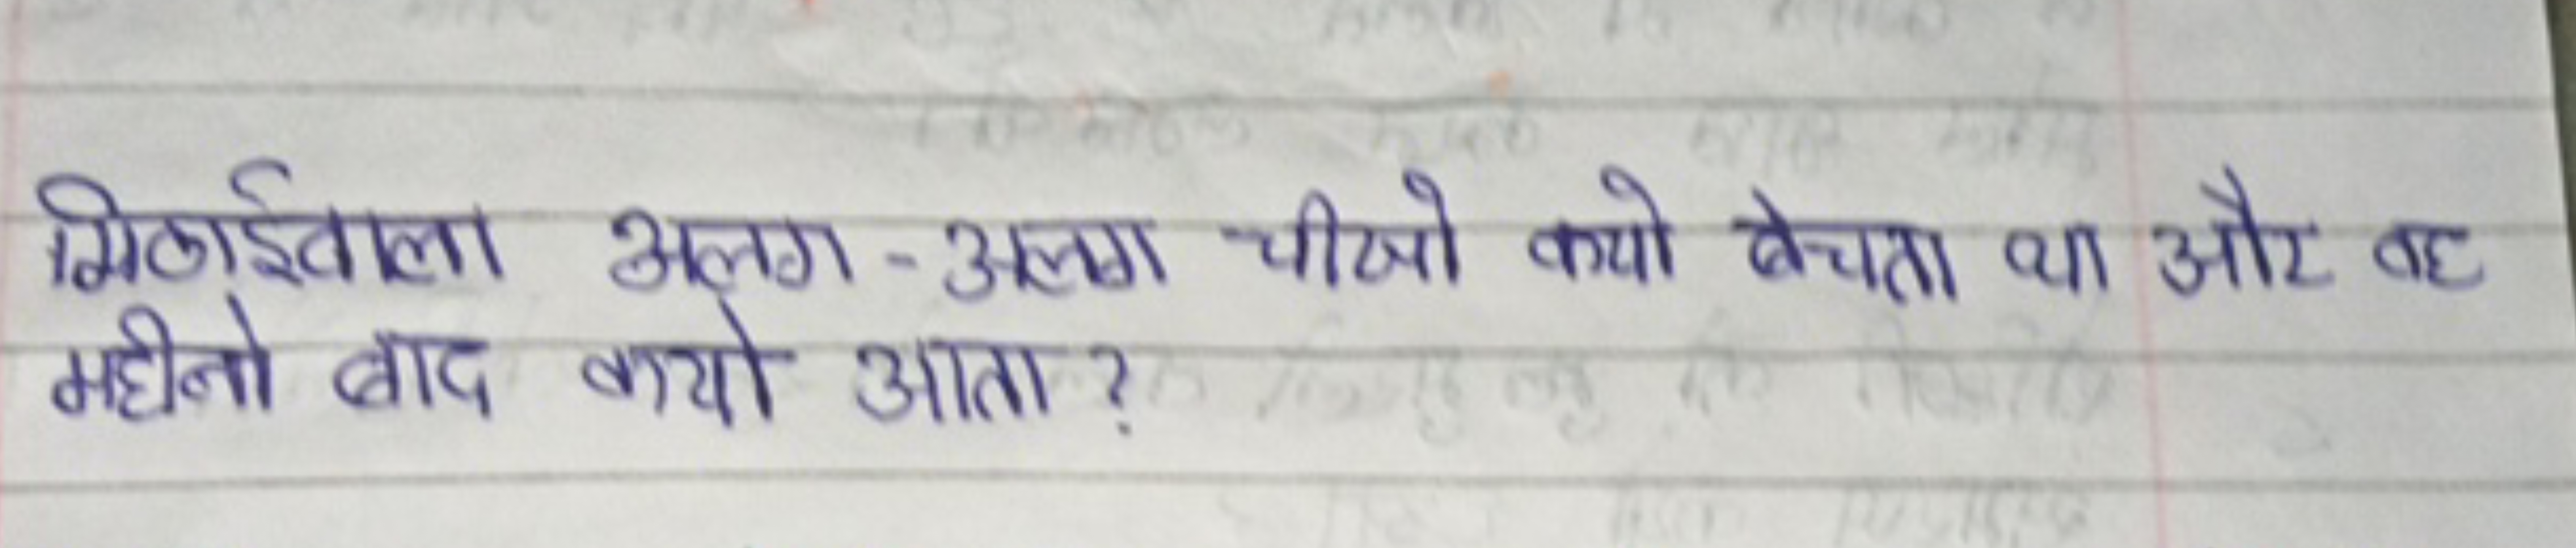 मिठाईवाला अलग-अलग चीजो क्यो बेचता था और वह
महीनो बाद क्यो आता?